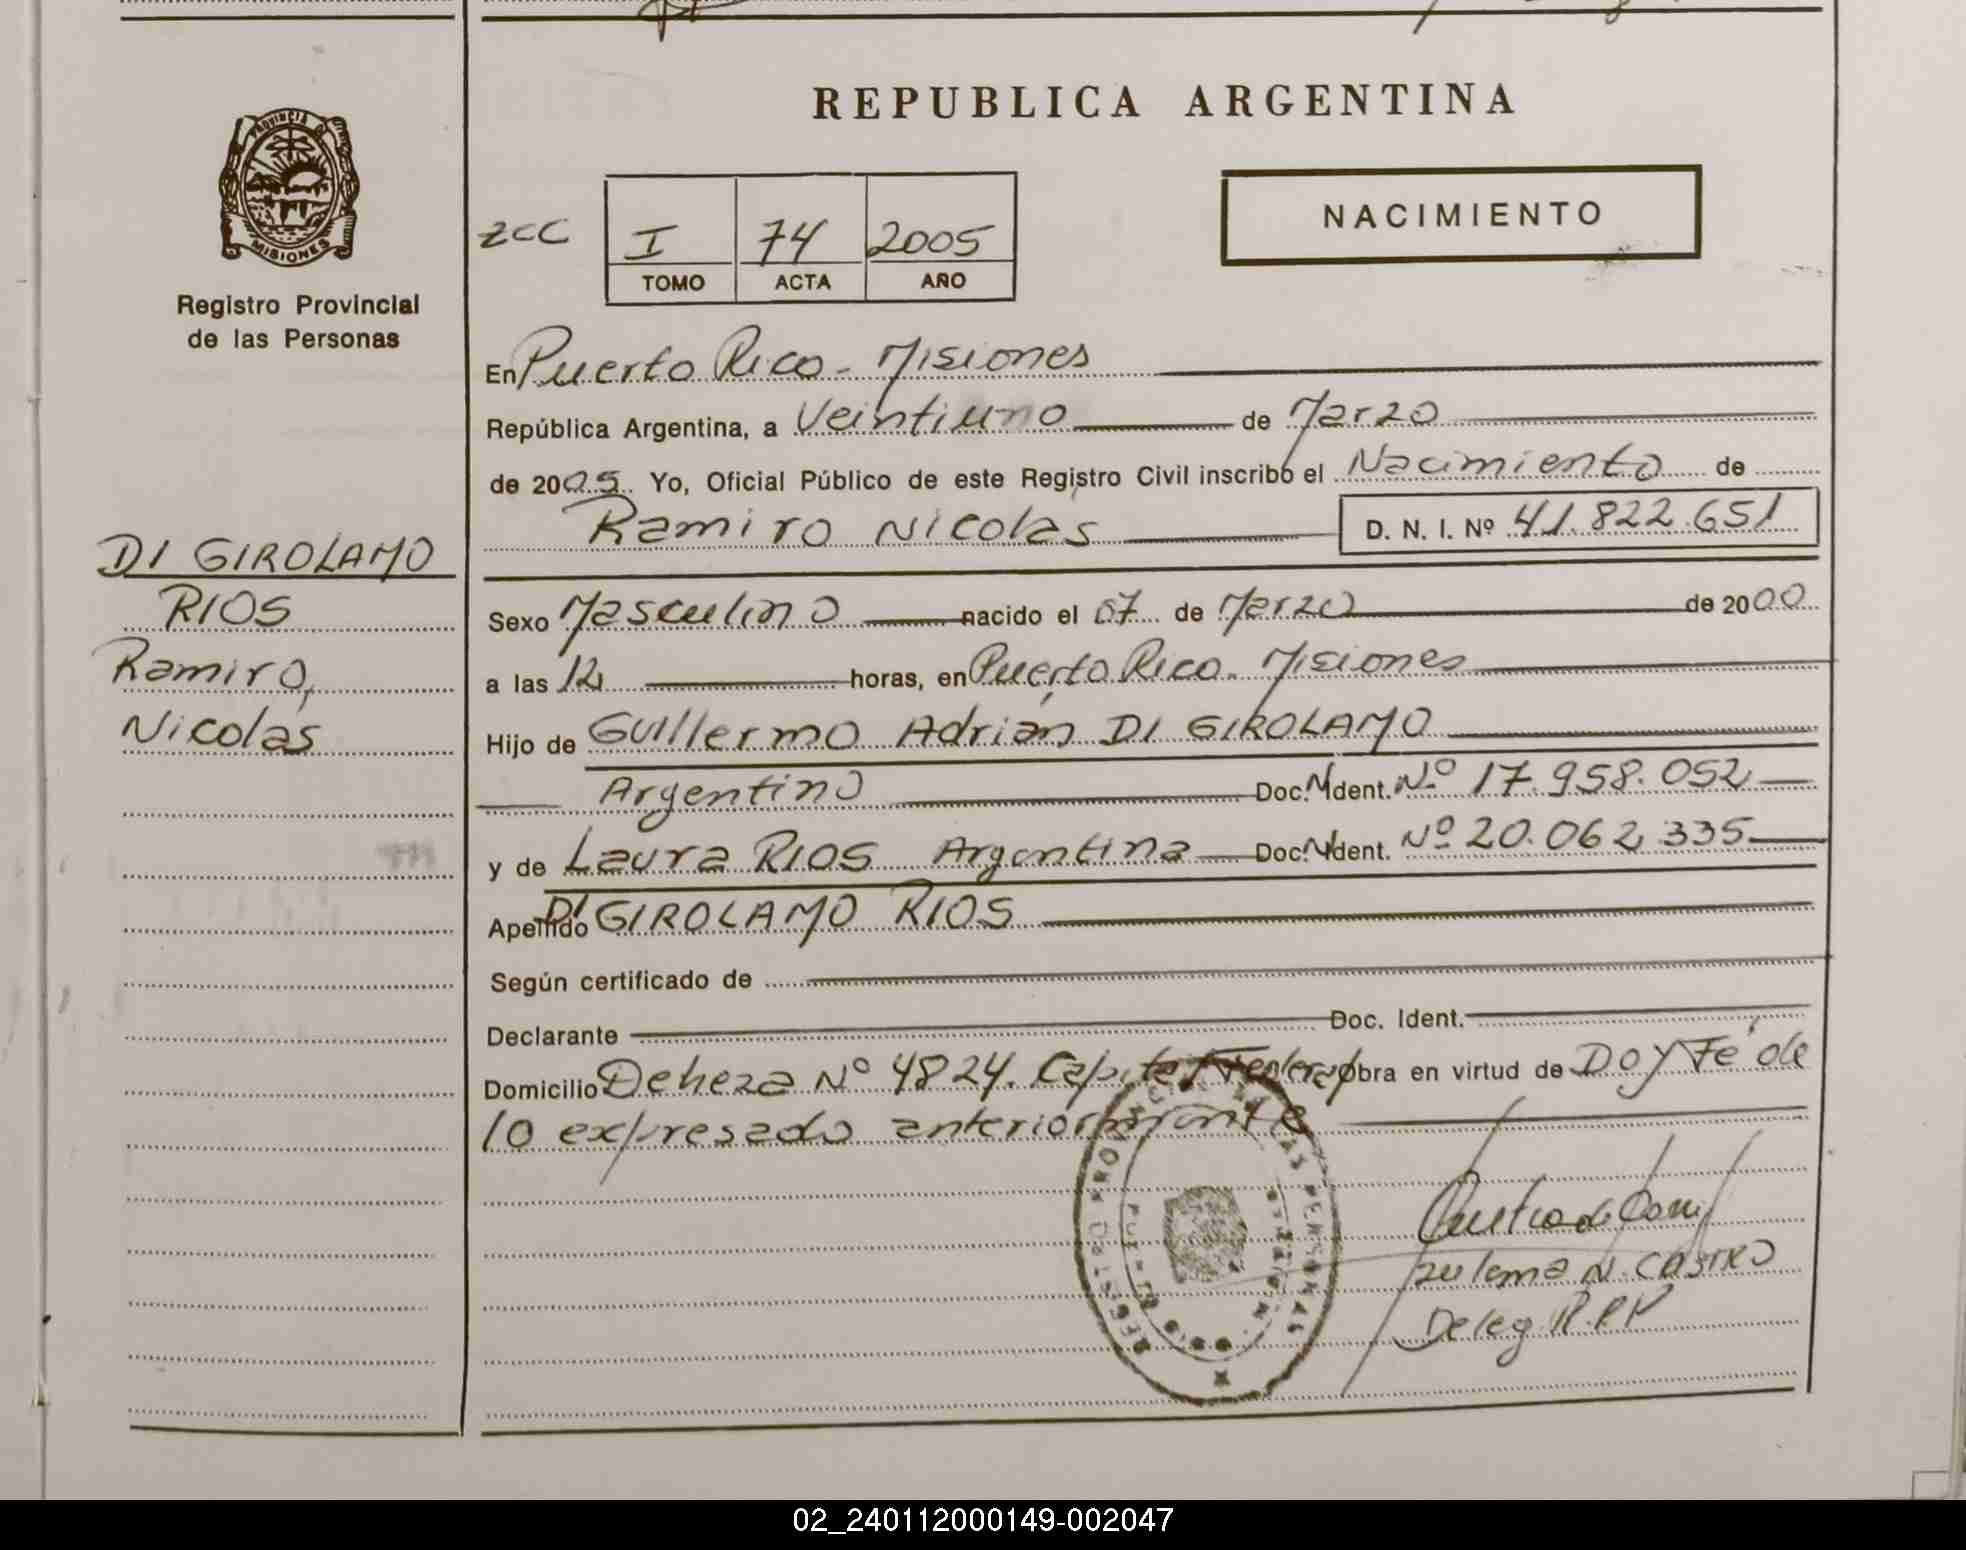 REPUBLICA ARGENTINA
PROVINCIA DE
MISIONES
Registro Provincial
de las Personas
ZCC
I 74 2005
TOMO ACTA AÑO
NACIMIENTO
En Puerto Rico - Misiones
República Argentina, a Veintiuno de Marzo
de 2005. Yo, Oficial Público de este Registro Civil inscribo el Nacimiento de
Ramiro Nicolás D. N. I. Nº 41.822.651
DI GIROLAMO
RIOS
Ramiro,
Nicolás
Sexo Masculino nacido el 07 de Marzo de 2000
a las 12 horas, en Puerto Rico - Misiones
Hijo de Guillermo Adrián DI GIROLAMO
Argentino Doc. N. Ident. Nº 17.958.052
y de Laura RIOS Argentina Doc. N. Ident. Nº 20.062.335
Apellido DI GIROLAMO RIOS
Según certificado de
Declarante Doc. Ident.
Domicilio Deheza Nº 4824. Capital Federal obra en virtud de Doy Fé de
lo expresado anteriormente
REGISTRO PERSONAS
Zulema N. CASTRO
Deleg. R.P.P
02_240112000149-002047